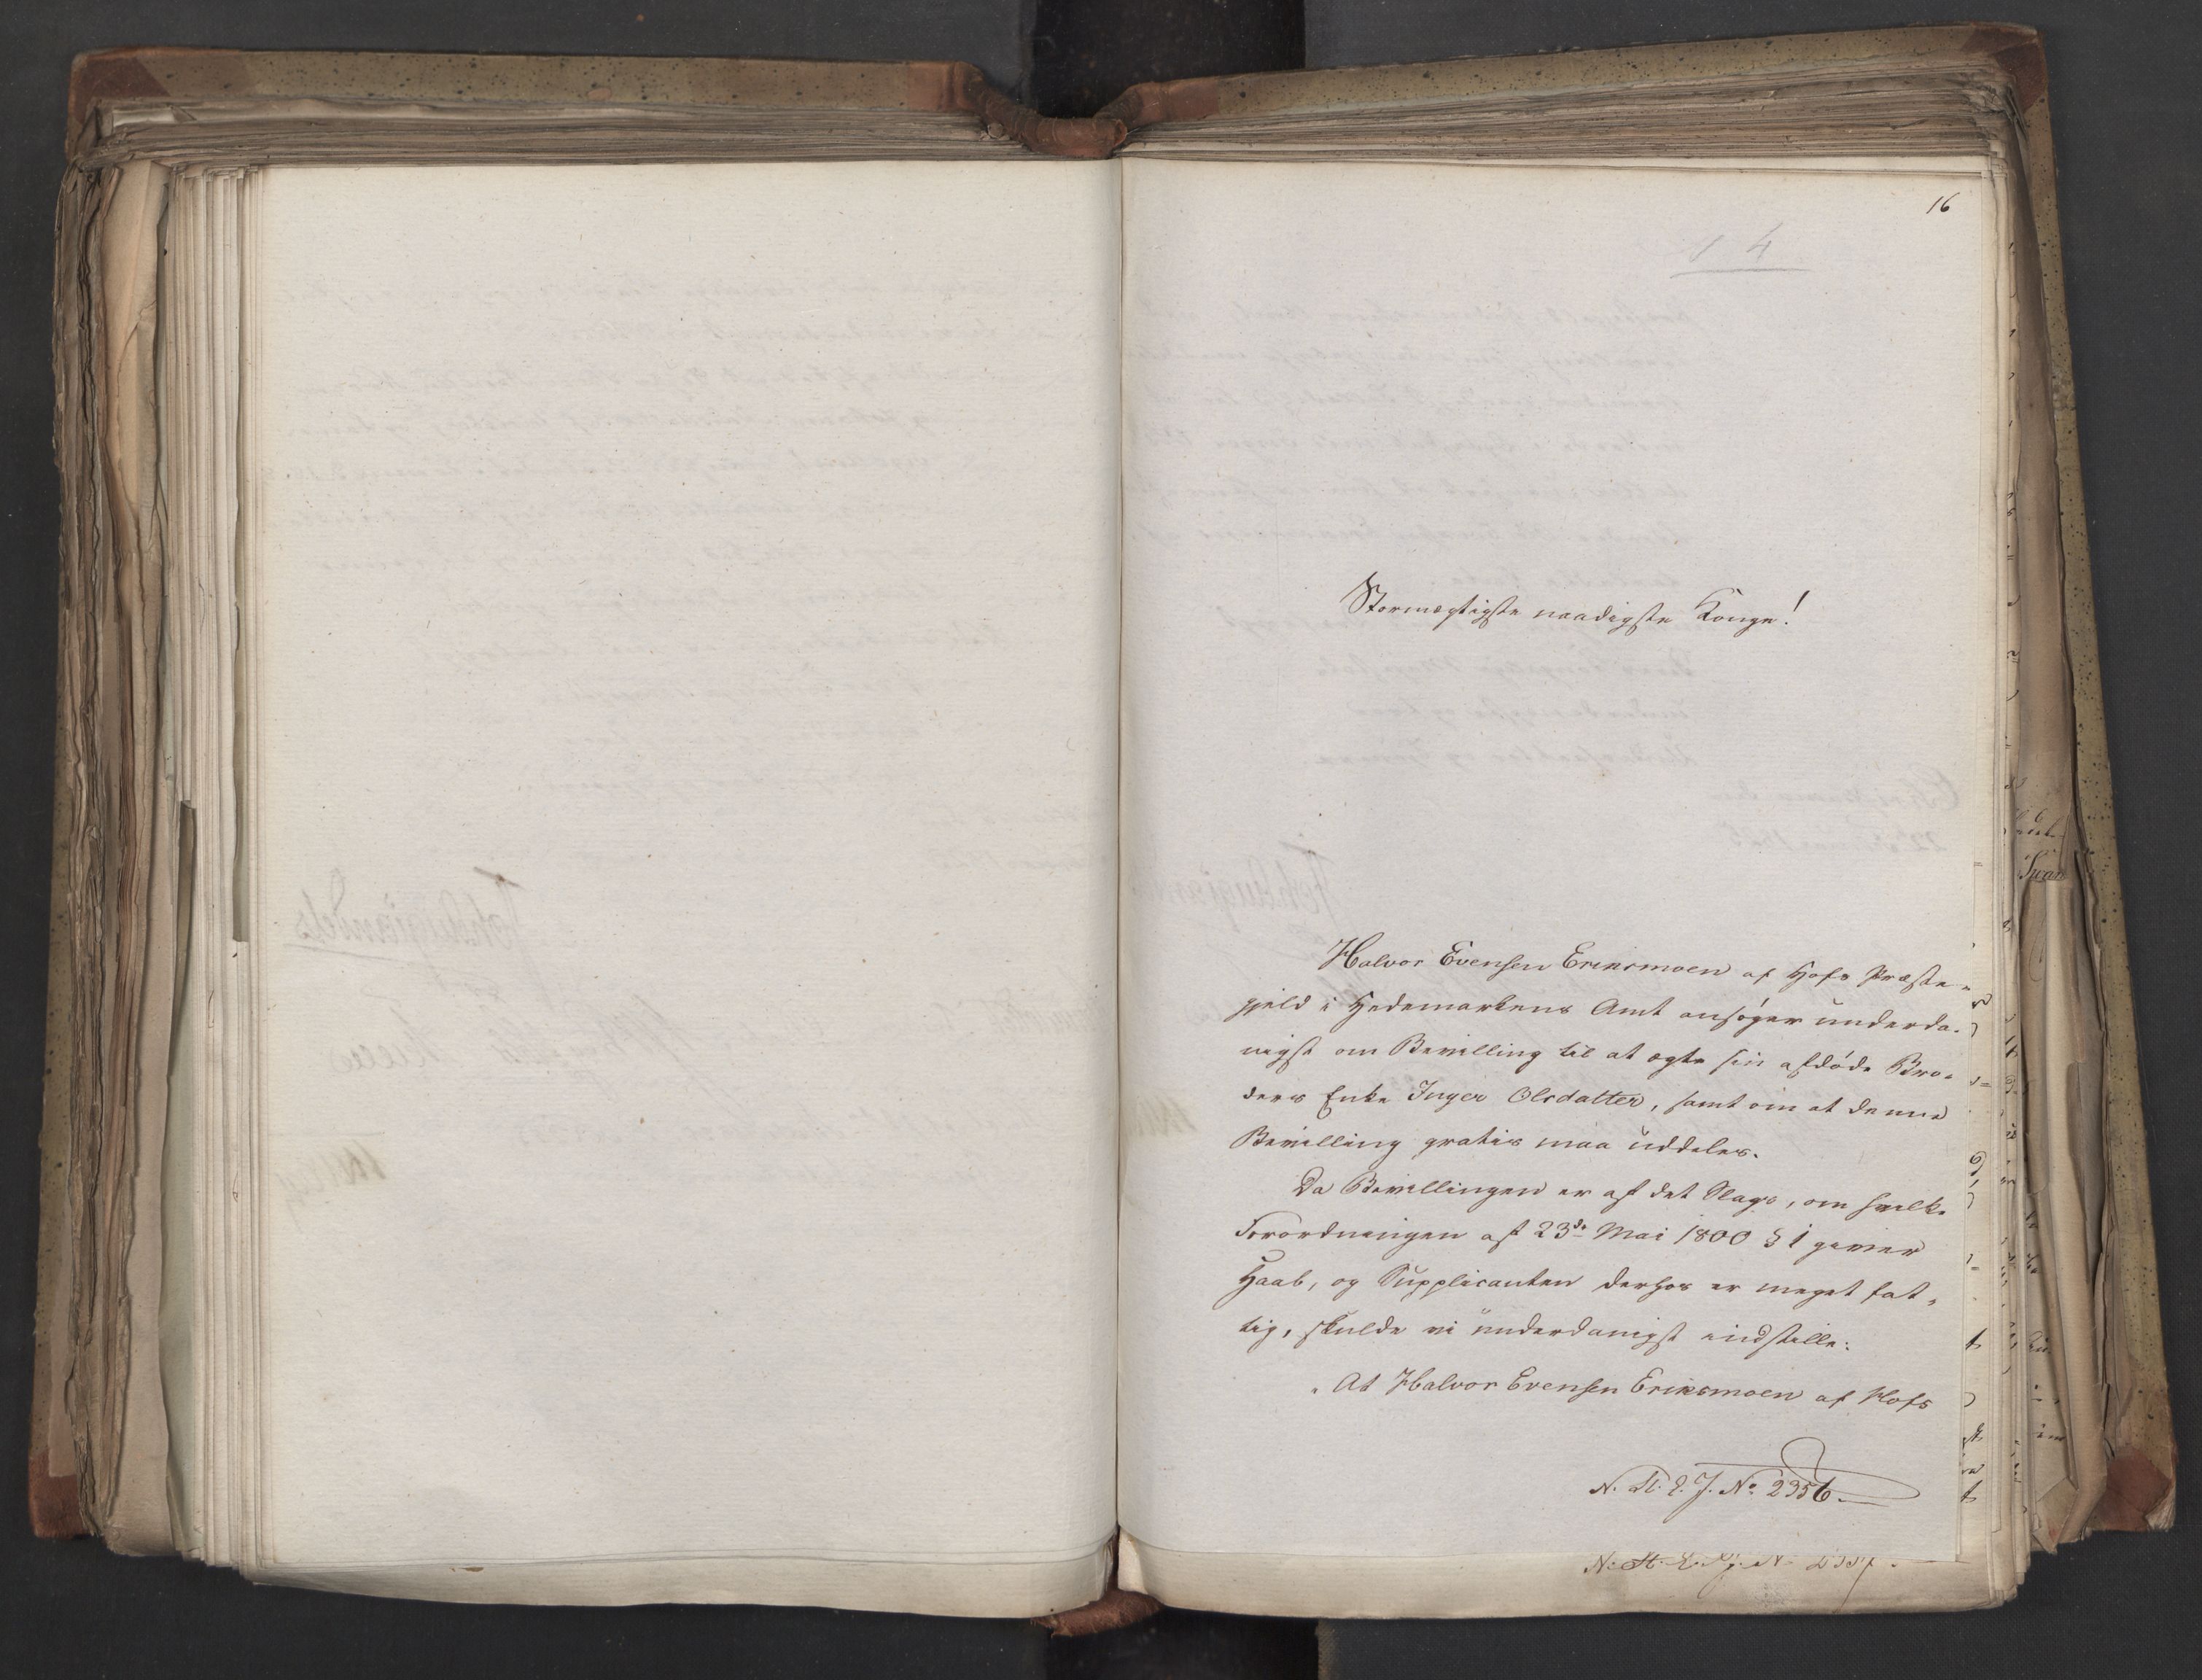 16
14
Stormægtigste naadigste Konge!
Halvor Evensen Eriksmoen af Hofs Præste-
gjeld i Hedemarkens Amt ansøger underda-
nigst om Bevilling til at ægte sin afdøde Bro-
ders Enke Inger Olsdatter, samt om at denne
Bevilling gratis maa uddeles.
Da Bevillingen er af det Slags, om hvilke
Forordningen af 23de Mai 1800 § 1 giver
Haab, og Supplicanten derhos er meget fat-
tig, skulde vi underdanigst indstille:
"At Halvor Evensen Eriksmoen af Hofs
N. St. E. J. No 2356.